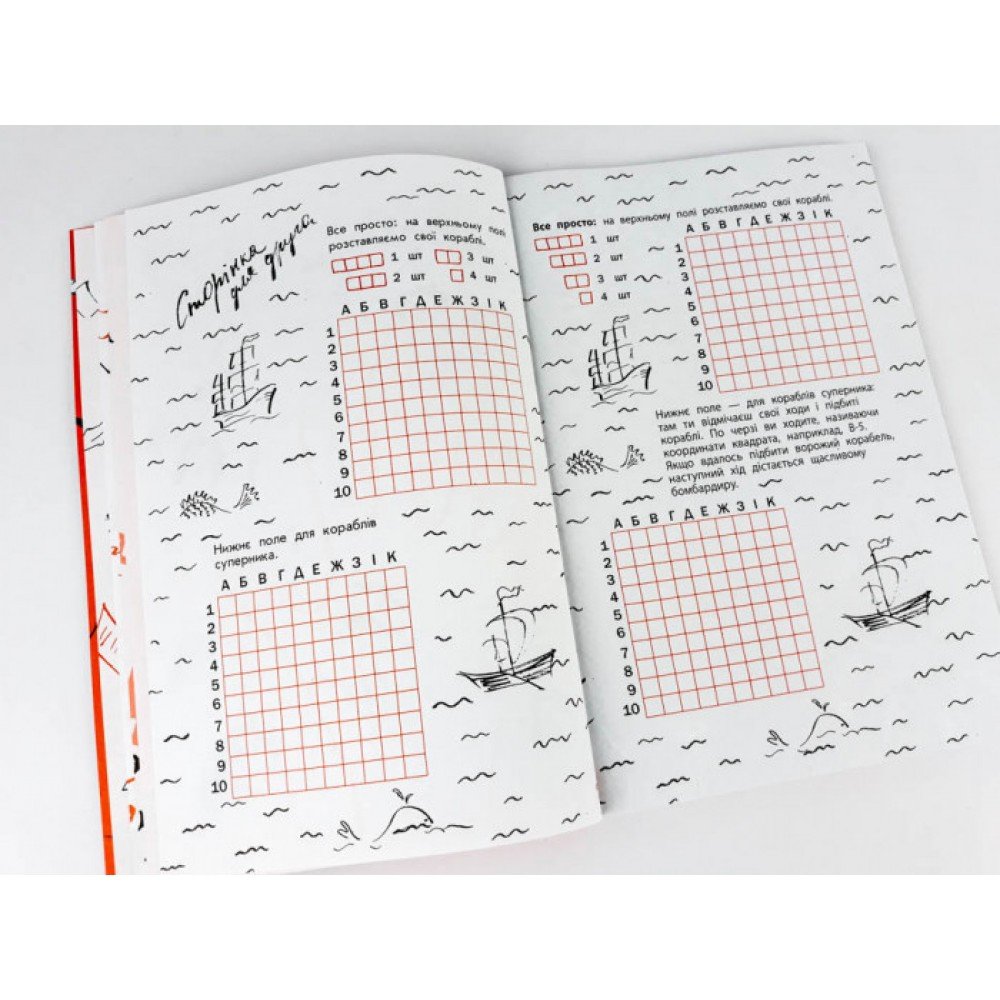 Сторінка
для друга
Все просто: на верхньому полі
розставляємо свої кораблі.
1 шт 3 шт
2 шт 4 шт
А Б В Г Д Е Ж З І К
1
2
3
4
5
6
7
8
9
10
Нижнє поле для кораблів
суперника.
А Б В Г Д Е Ж З І К
1
2
3
4
5
6
7
8
9
10
Все просто: на верхньому полі розставляємо свої кораблі.
1 шт
2 шт
3 шт
4 шт
А Б В Г Д Е Ж З І К
1
2
3
4
5
6
7
8
9
10
Нижнє поле — для кораблів суперника:
там ти відмічаєш свої ходи і підбиті
кораблі. По черзі ви ходите, називаючи
координати квадрата, наприклад, В-5.
Якщо вдалось підбити ворожий корабель,
наступний хід дістається щасливому
бомбардиру.
А Б В Г Д Е Ж З І К
1
2
3
4
5
6
7
8
9
10